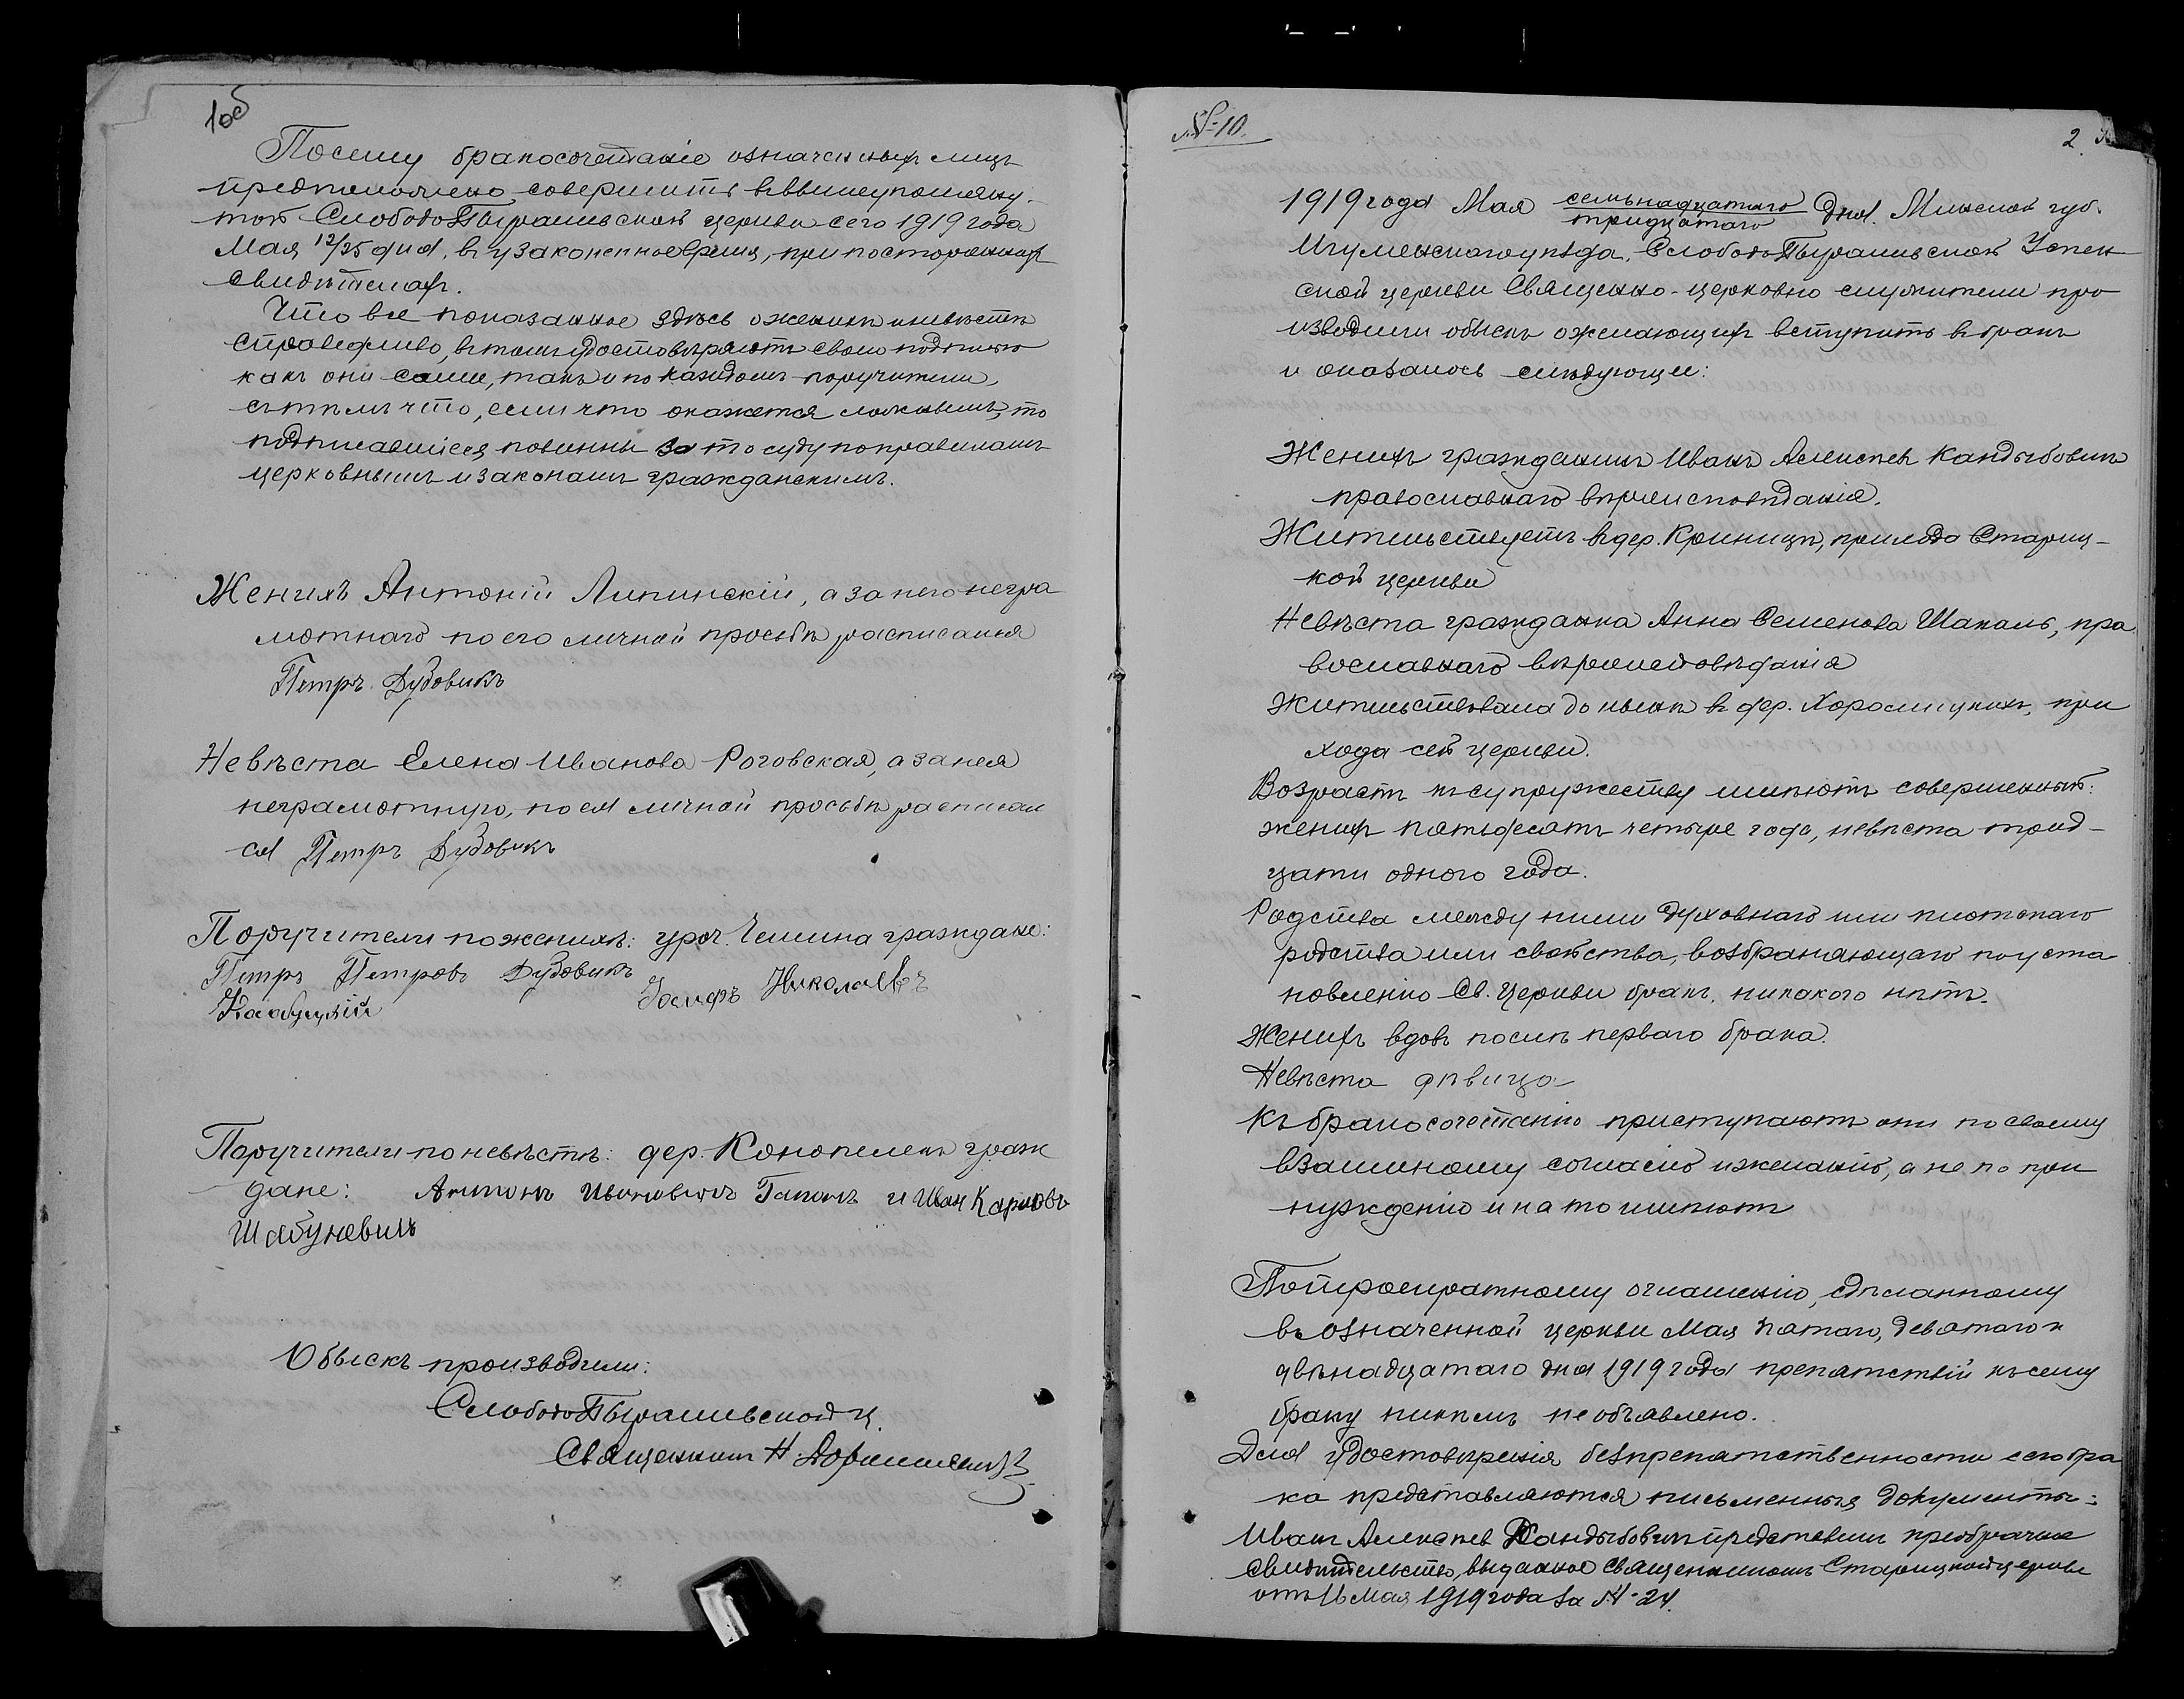 1об
Посему бракосочетаніе означенныхъ лицъ
предположено совершить въ вышеупомяну-
той СлободоПырашевской церкви сего 1919 года
Мая 12/25 дня, въ узаконенное время, при постороннихъ
свидѣтеляхъ.
Что все показанное здѣсь о женихѣ и невѣстѣ
справедливо, въ томъ удостовѣряютъ своею подписью
какъ они сами, такъ и по каждомъ поручители,
съ тѣмъ что, если что окажется ложнымъ, то
подписавшіеся повинны за то суду по правиламъ
церковнымъ и законамъ гражданскимъ.
Женихъ Антоній Липинскій, а за него негра
мотнаго по его личной просьбѣ расписался
Петръ Дудовикъ
Невѣста Елена Иванова Роговская, а за нея
неграмотную, по ея личной просьбѣ расписал
ся Петръ Дудовикъ
Поручители по женихѣ: уроч. граждане:
Петръ Петровъ Дудовикъ Іосифъ Николаевъ
Поручители по невѣстѣ: дер. граж
дане: Антонъ Ивановичъ Гапонъ и Иван Карповъ
Шабуневичъ
Обыскъ производили:
СлободоПырашевской ц.
Священникъ Н.
№ 10.
2.
1919 года Мая семьнадцатаго/тридцатаго дня. Минской губ.
Игуменскаго уѣзда, СлободоПырашевской Успен
ской церкви Священно-церковно служители про
изводили обыскъ о желающихъ вступить въ бракъ
и оказалось слѣдующее:
Женихъ гражданинъ Иванъ Алексѣев Кандыбовичъ
православнаго вѣроисповѣданія.
Жительствуетъ въ дер. Криницѣ, прихода Стариц-
кой церкви
Невѣста гражданка Анна Семенова Шакаль, пра
вославнаго вѣроисповѣданія
Жительствовала до нынѣ въ дер. при
хода сей церкви.
Возрастъ къ супружеству имѣютъ совершенный:
женихъ пятьдесятъ четыре года, невѣста трид-
цати одного года.
Родства между ними духовнаго или плотскаго
родства или свойства, возбраняющаго по уста
новленію Св. Церкви бракъ, никакого нѣтъ.
Женихъ вдовъ послѣ перваго брака.
Невѣста дѣвица
Къ бракосочетанію приступаютъ они по своему
взаимному согласію и желанію, а не по при
нужденію и на то имѣютъ
По троекратному оглашенію, сдѣланному
въ означенной церкви Мая пятаго, девятаго и
двѣнадцатаго дня 1919 года препятствій къ сему
браку никѣмъ не объявлено.
Для удостовѣренія безпрепятственности сего бра
ка представляются письменныя документы:
Иванъ Алексѣев Кандыбовичъ представилъ предбрачное
свидѣтельство, выданное священникомъ Старицкой церкви
отъ 16 Мая 1919 года за № 24.